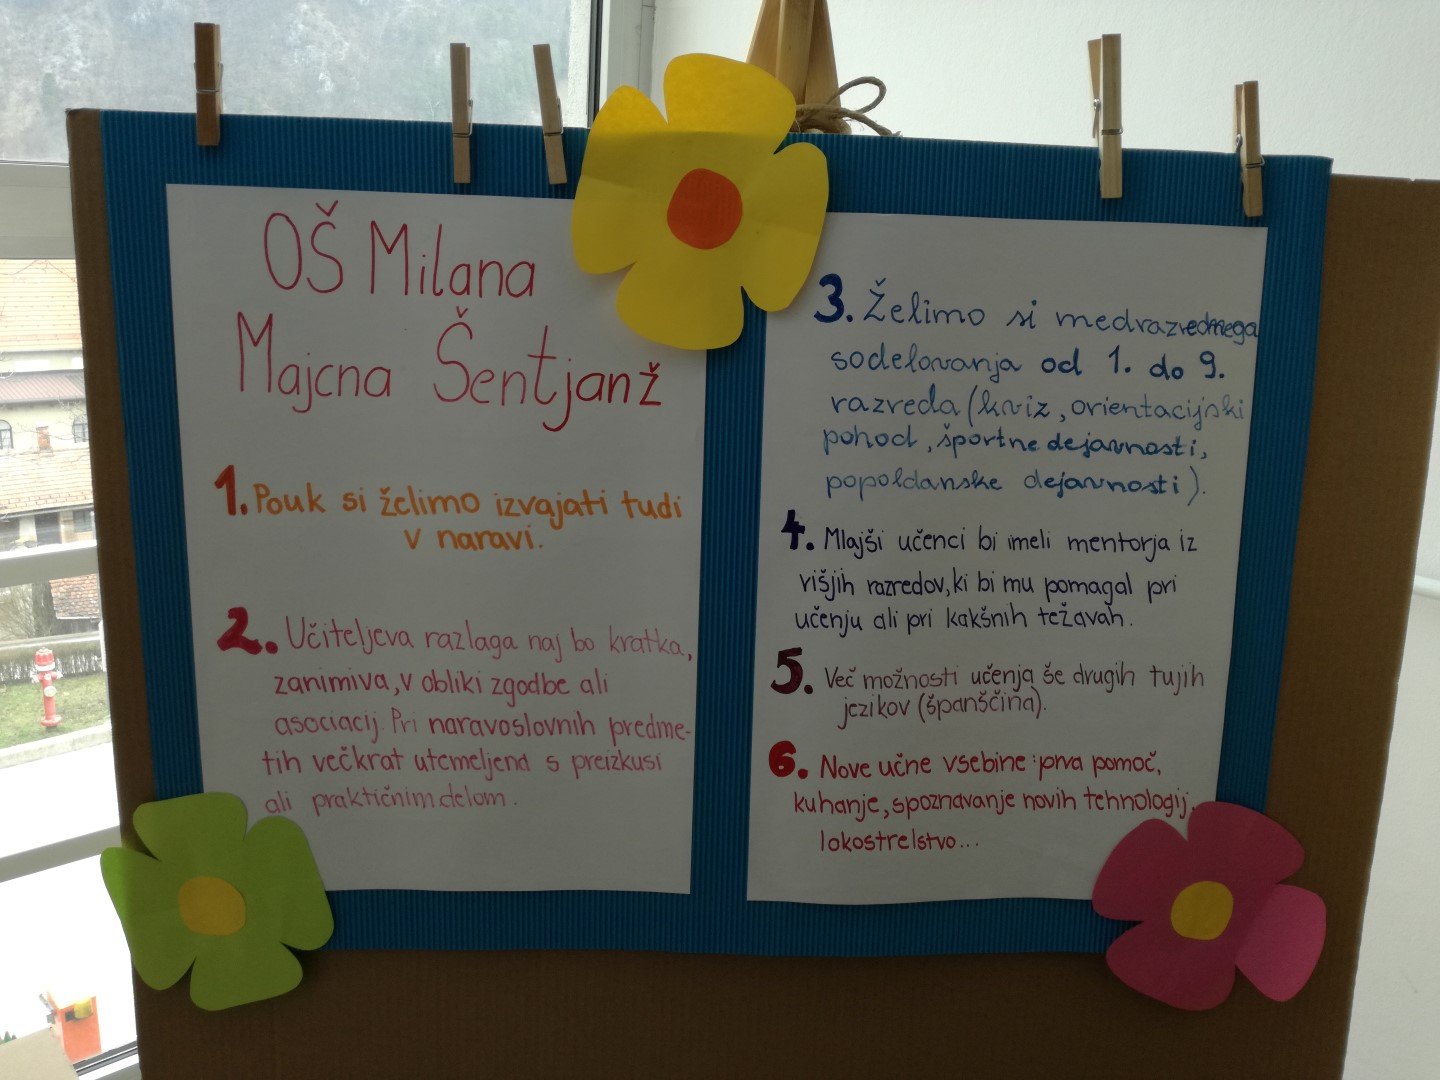 OŠ Milana
Majcna Šentjanž
1. Pouk si želimo izvajati tudi
v naravi.
2. Učiteljeva razlaga naj bo kratka,
zanimiva, v obliki zgodbe ali
asociacij. Pri naravoslovnih predme-
tih večkrat utemeljena s preizkusi
ali praktičnim delom.
3. Želimo si medrazrednega
sodelovanja od 1. do 9.
razreda (kviz, orientacijski
pohod, športne dejavnosti,
popoldanske dejavnosti).
4. Mlajši učenci bi imeli mentorja iz
višjih razredov, ki bi mu pomagal pri
učenju ali pri kakšnih težavah.
5. Več možnosti učenja še drugih tujih
jezikov (španščina).
6. Nove učne vsebine: prva pomoč,
kuhanje, spoznavanje novih tehnologij,
lokostrelstvo...